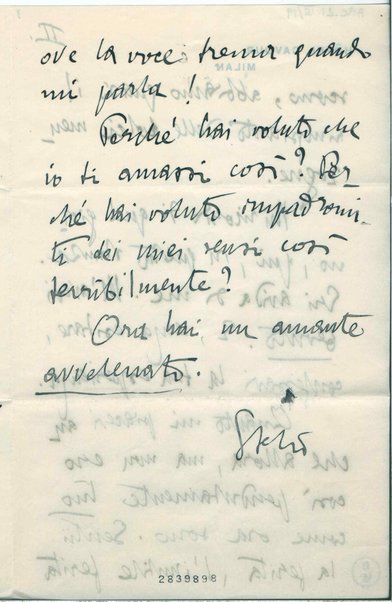 ove la voce trema quando
mi parla!
Perché hai voluto che
io ti amassi così? Per
ché hai voluto impadronir-
ti dei miei sensi così
terribilmente?
Ora hai un amante
avvelenato.
Stelio
2839898